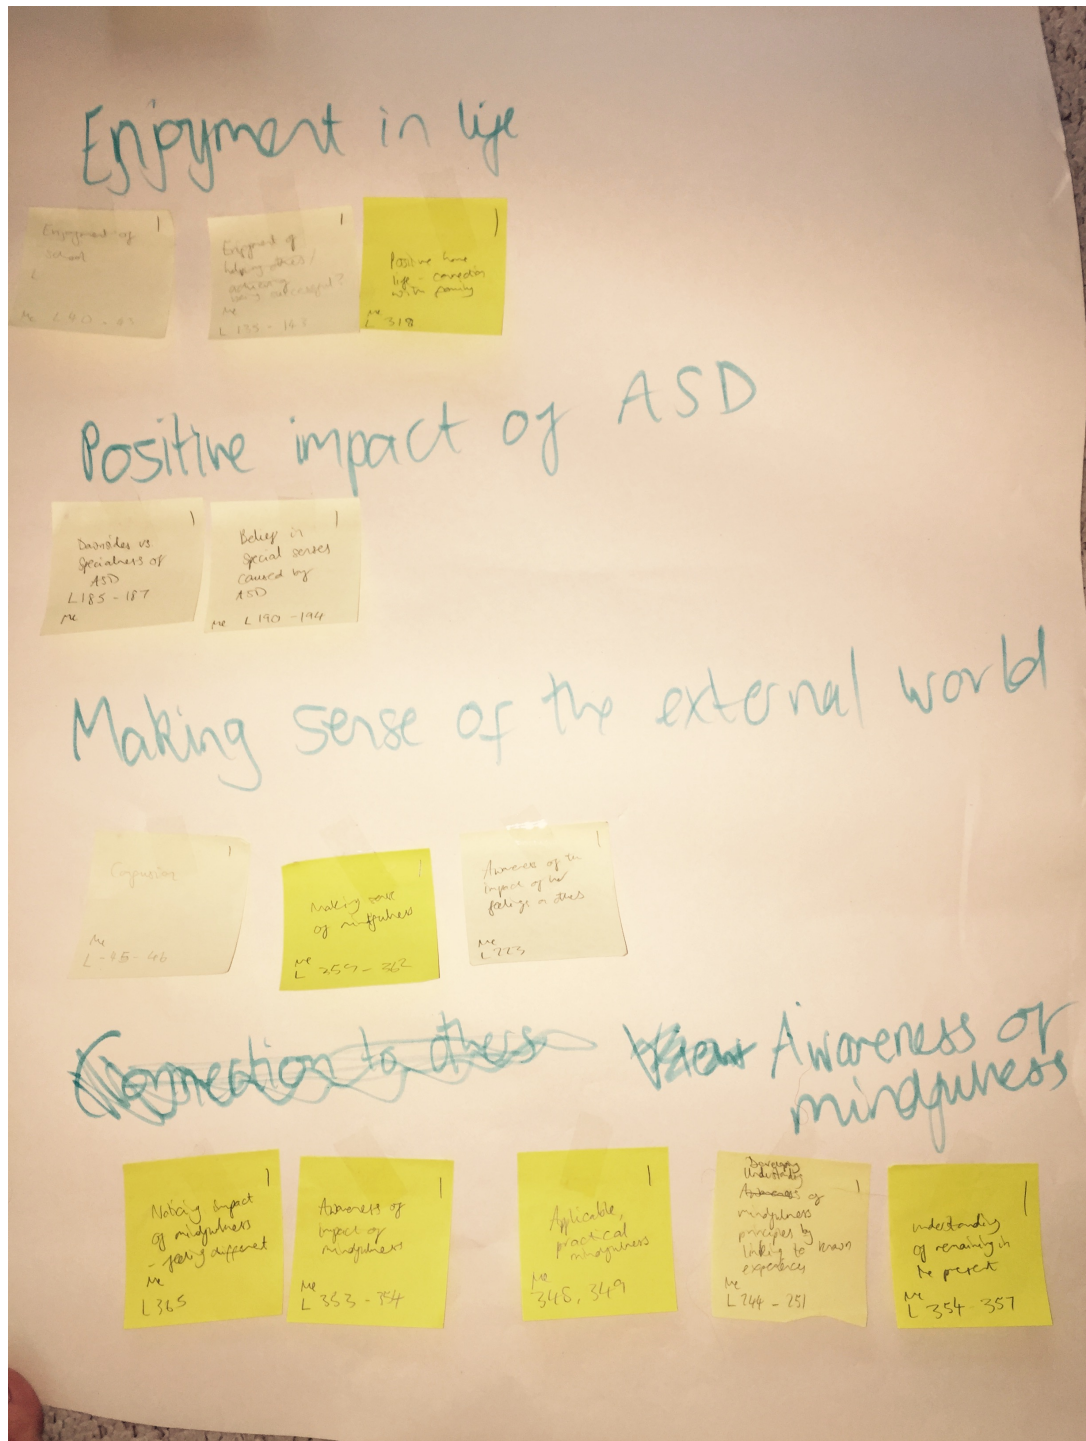 Enjoyment in life
1
Enjoyment of
school
L
Me L 40 - 43
1
Enjoyment of
helping others /
being successful?
Me
L 135 - 143
1
Positive home
life - connection
with family
Me
L 318
Positive impact of ASD
1
Downsides vs
specialness of
ASD
L185 - 187
Me
1
Belief in
special senses
caused by
ASD
Me L190 - 194
Making sense of the external world
1
Confusion
Me
L - 45 - 46
1
Making sense
of mindfulness
Me
L 359 - 362
1
Awareness of the
impact of her
feelings on others
Me
L223
Connection to others View Awareness of
mindfulness
1
Noticing impact
of mindfulness
- feeling different
Me
L365
1
Awareness of
impact of
mindfulness
Me
L 353 - 354
1
Applicable,
practical
mindfulness
Me
348, 349
1
Understanding
Awareness of
mindfulness
principles by
linking to known
experiences
Me
L 244 - 251
1
understanding
of remaining in
the present
Me
L 354 - 357